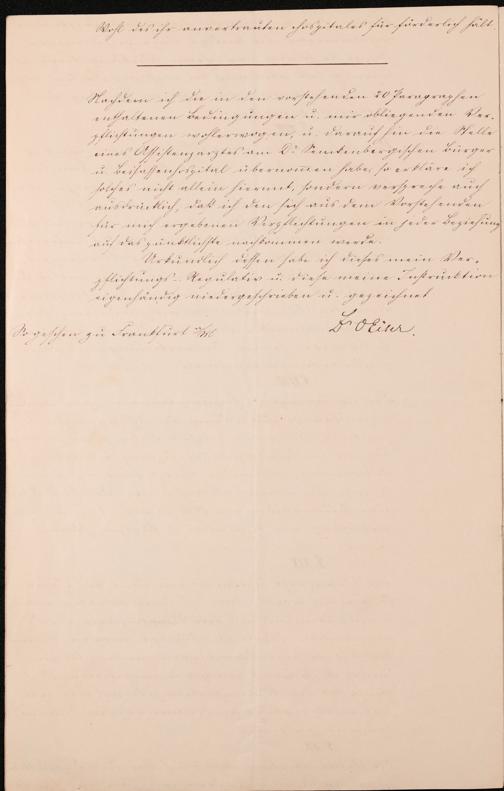 Wohl des ihr anvertrauten Hospitales für förderlich hält.
Nachdem ich die in den vorstehenden 20 Paragraphen
enthaltenen Bedingungen u. mir obliegenden Ver-
pflichtungen wohlerwogen, u. daraufhin die Stelle
eines Assistenzarztes am Dr. Senckenbergischen Bürger
u. Beisassenhospital übernommen habe, so erkläre ich
solches nicht allein hiermit, sondern verspreche auch
ausdrücklich, daß ich den sich aus dem Vorstehenden
für mich ergebenen Verpflichtungen in jeder Beziehung
auf das pünktlichste nachkommen werde.
Urkundlich dessen habe ich dieses mein Ver-
pflichtungs-Regulativ u. diese meine Instruktion
eigenhändig niedergeschrieben u. gezeichnet
So geschehen zu Frankfurt
Dr